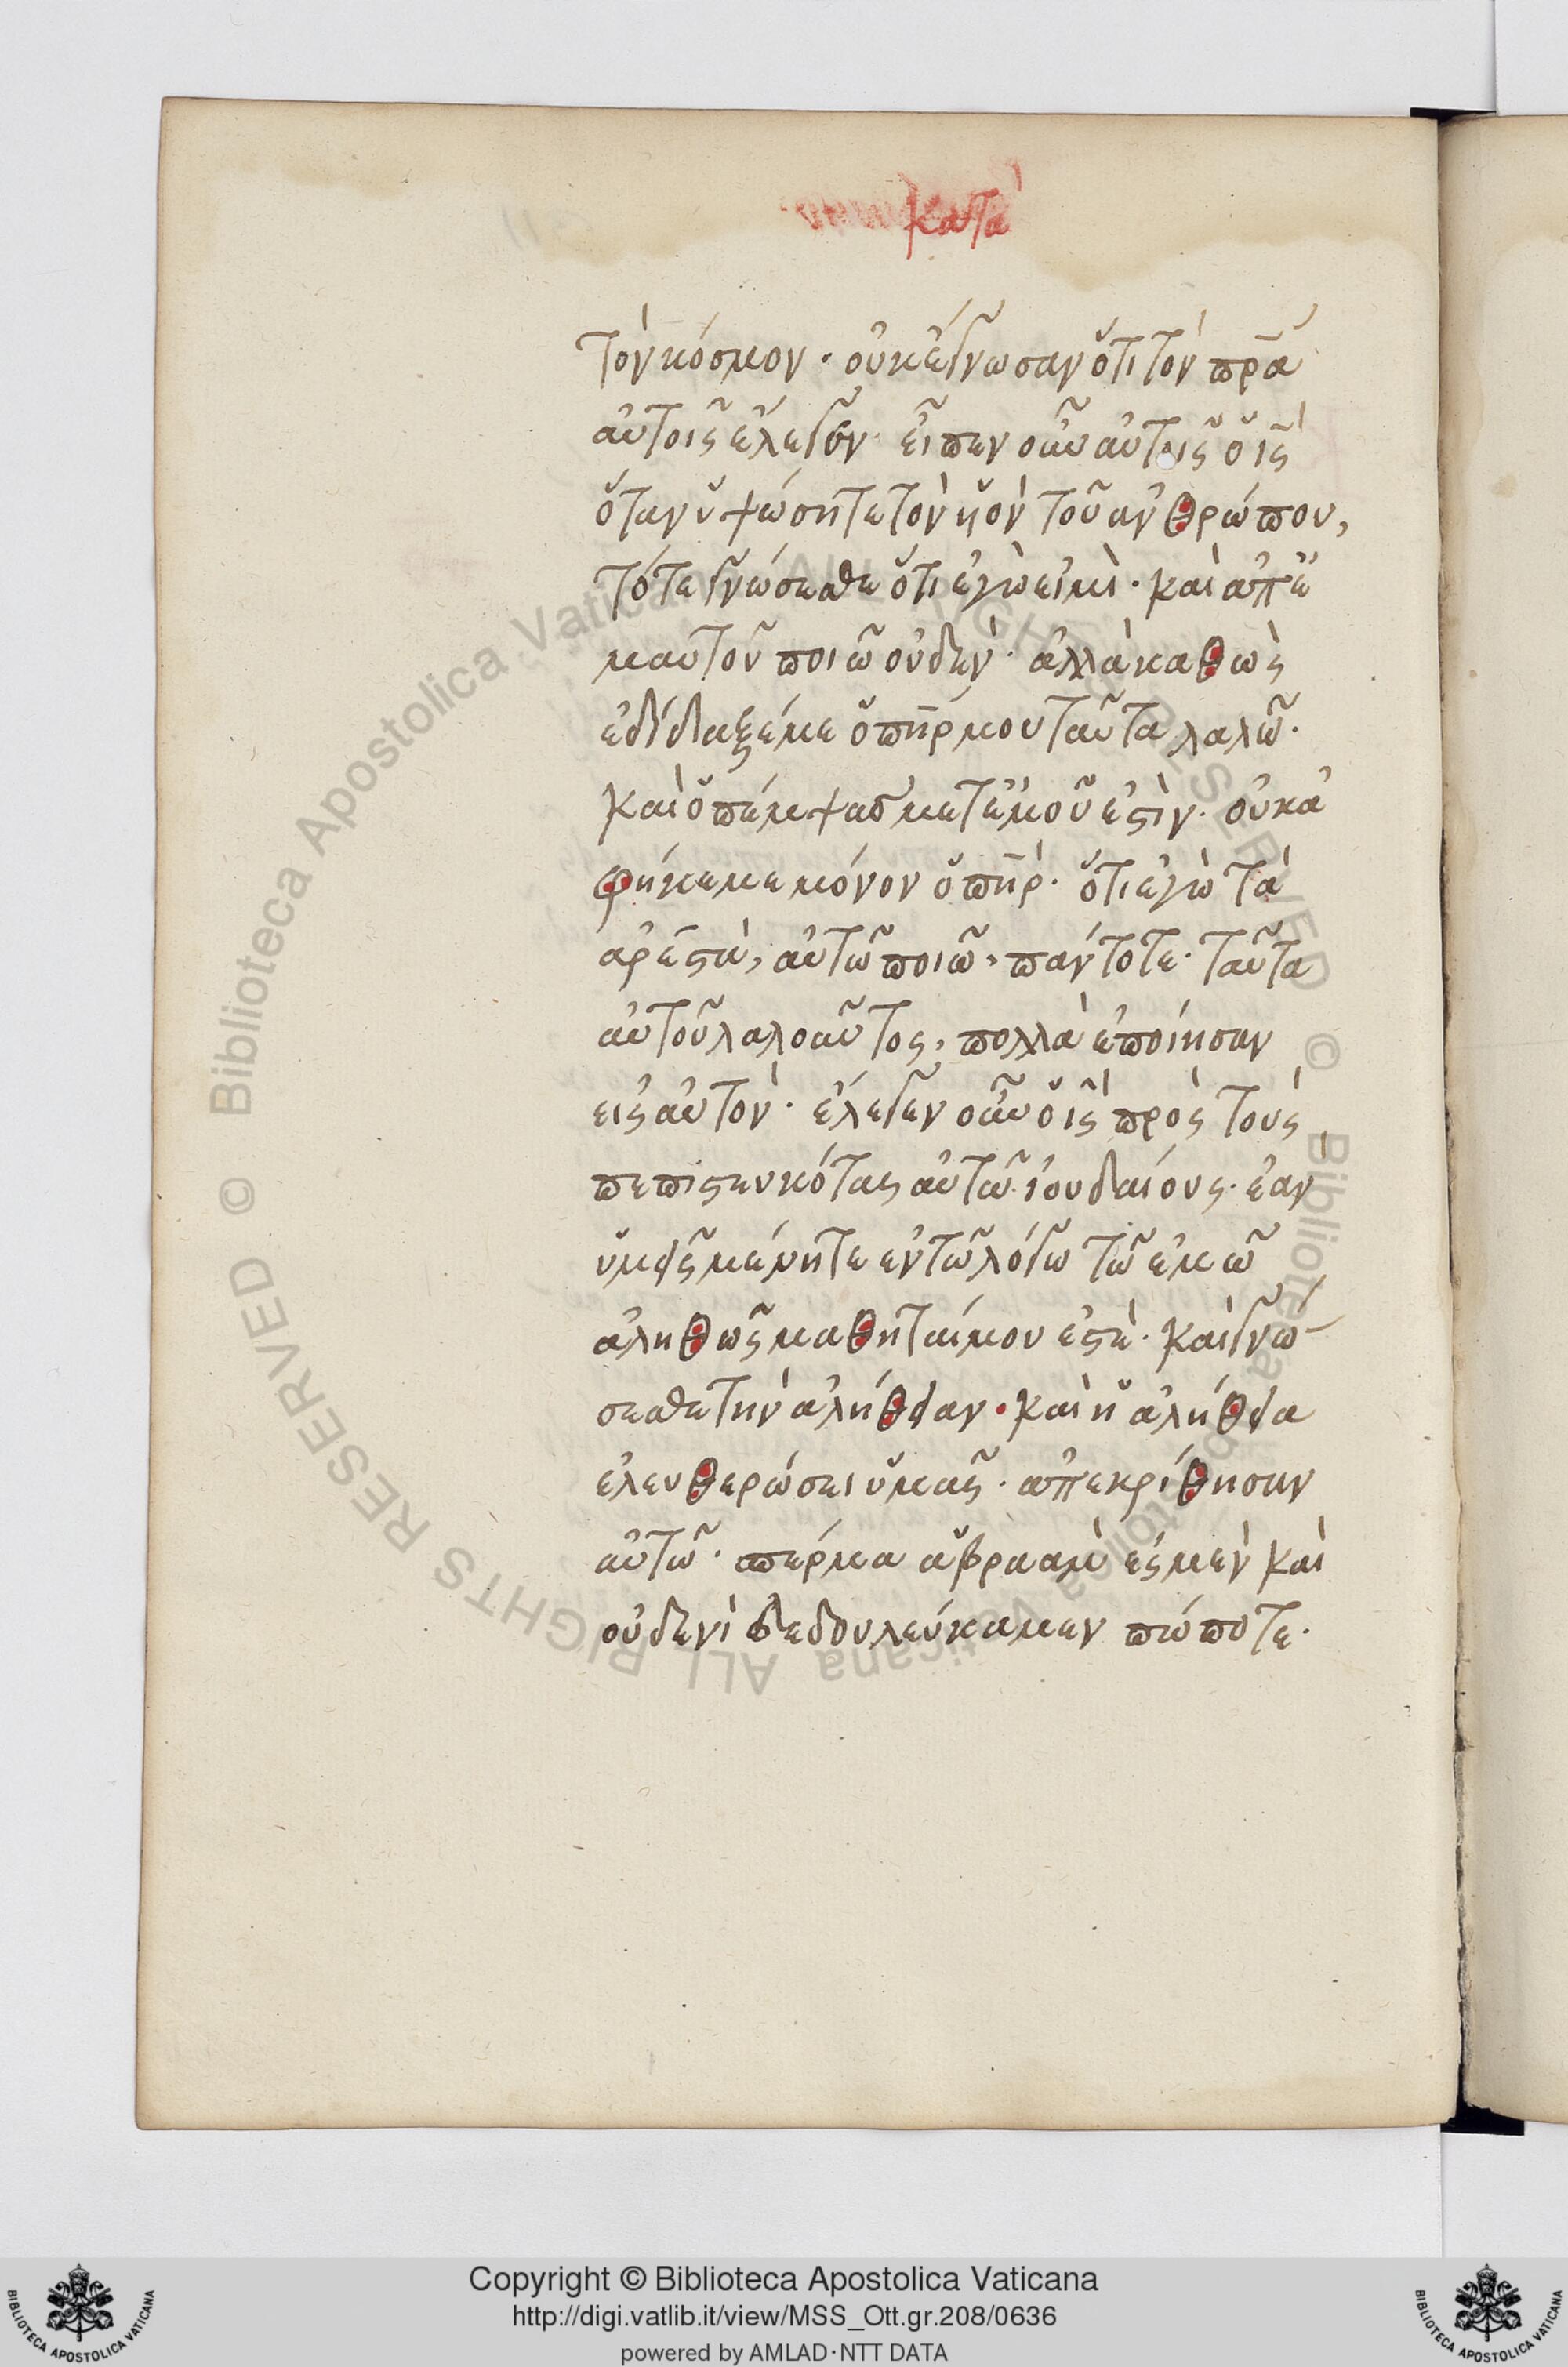 κατὰ
τὸν κόσμον · οὐκ ἔγνωσαν ὅτι τὸν πρ̅α
αὐτοῖς ἔλεγεν · εἶπεν οὖν αὐτοῖς ὁ ι̅ς
ὅταν ὑψώσητε τὸν υἱὸν τοῦ ἀνθρώπου,
τότε γνώσεσθε ὅτι ἐγὼ εἰμὶ · καὶ ἀπ' ἐ
μαυτοῦ ποιῶ οὐδὲν · ἀλλὰ καθὼς
ἐδίδαξέ με ὁ πη̅ρ μου ταῦτα λαλῶ ·
καὶ ὁ πέμψας με μετ' ἐμοῦ ἐστὶν · οὐκ ἀ
φῆκέ με μόνον ὁ πη̅ρ · ὅτι ἐγὼ τὰ
ἀρεστὰ, αὐτῶ ποιῶ, πάντοτε · ταῦτα
αὐτοῦ λαλοῦντος, πολλὰ ἐποίησαν
εἰς αὐτὸν · ἔλεγεν οὖν ὁ ι̅ς πρὸς τοὺς
πεπιστευκότας αὐτῶ ἰουδαίους · ἐὰν
ὑμεῖς μένητε ἐν τῶ λόγω τῶ ἐμῶ
ἀληθῶς μαθηταί μου ἐστὲ · καὶ γνώ
σεσθε τὴν ἀλήθειαν · καὶ ἡ ἀλήθεια
ἐλευθερώσει ὑμᾶς · ἀπεκρίθησαν
αὐτῶ · σπέρμα ἀβραὰμ ἐσμὲν καὶ
οὐδενὶ δεδουλεύκαμεν πώποτε ·
© Biblioteca Apostolica Vaticana ALL RIGHTS RESERVED © Biblioteca Apostolica Vaticana ALL RIGHTS RESERVED
Copyright © Biblioteca Apostolica Vaticana
http://digi.vatlib.it/view/MSS_Ott.gr.208/0636
powered by AMLAD·NTT DATA
BIBLIOTECA APOSTOLICA VATICANA
BIBLIOTECA APOSTOLICA VATICANA